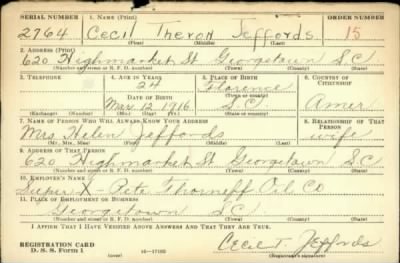 SERIAL NUMBER 1. NAME (Print) ORDER NUMBER
2764 Cecil Theron Jeffords 15
(First) (Middle) (Last)
2. ADDRESS (Print)
620 Highmarket St Georgetown S.C
(Number and street or R. F. D. number) (Town) (County) (State)
3. TELEPHONE 4. AGE IN YEARS 5. PLACE OF BIRTH 6. COUNTRY OF CITIZENSHIP
24 Florence
DATE OF BIRTH (Town or county)
Mar. 12, 1916 S.C Amer.
(Exchange) (No.) (Mo.) (Day) (Yr.) (State or country)
7. NAME OF PERSON WHO WILL ALWAYS KNOW YOUR ADDRESS 8. RELATIONSHIP OF THAT PERSON
Mrs Helen Jeffords wife
(Mr., Mrs., Miss) (First) (Middle) (Last)
9. ADDRESS OF THAT PERSON
620 Highmarket St Georgetown S.C
(Number and street or R. F. D. number) (Town) (County) (State)
10. EMPLOYER'S NAME
X - Pete Oil Co
11. PLACE OF EMPLOYMENT OR BUSINESS
Georgetown S.C
(Number and street or R. F. D. number) (Town) (County) (State)
I AFFIRM THAT I HAVE VERIFIED ABOVE ANSWERS AND THAT THEY ARE TRUE.
REGISTRATION CARD Cecil T Jeffords
D. S. S. Form 1 (over) 16-17105 (Registrant's signature)